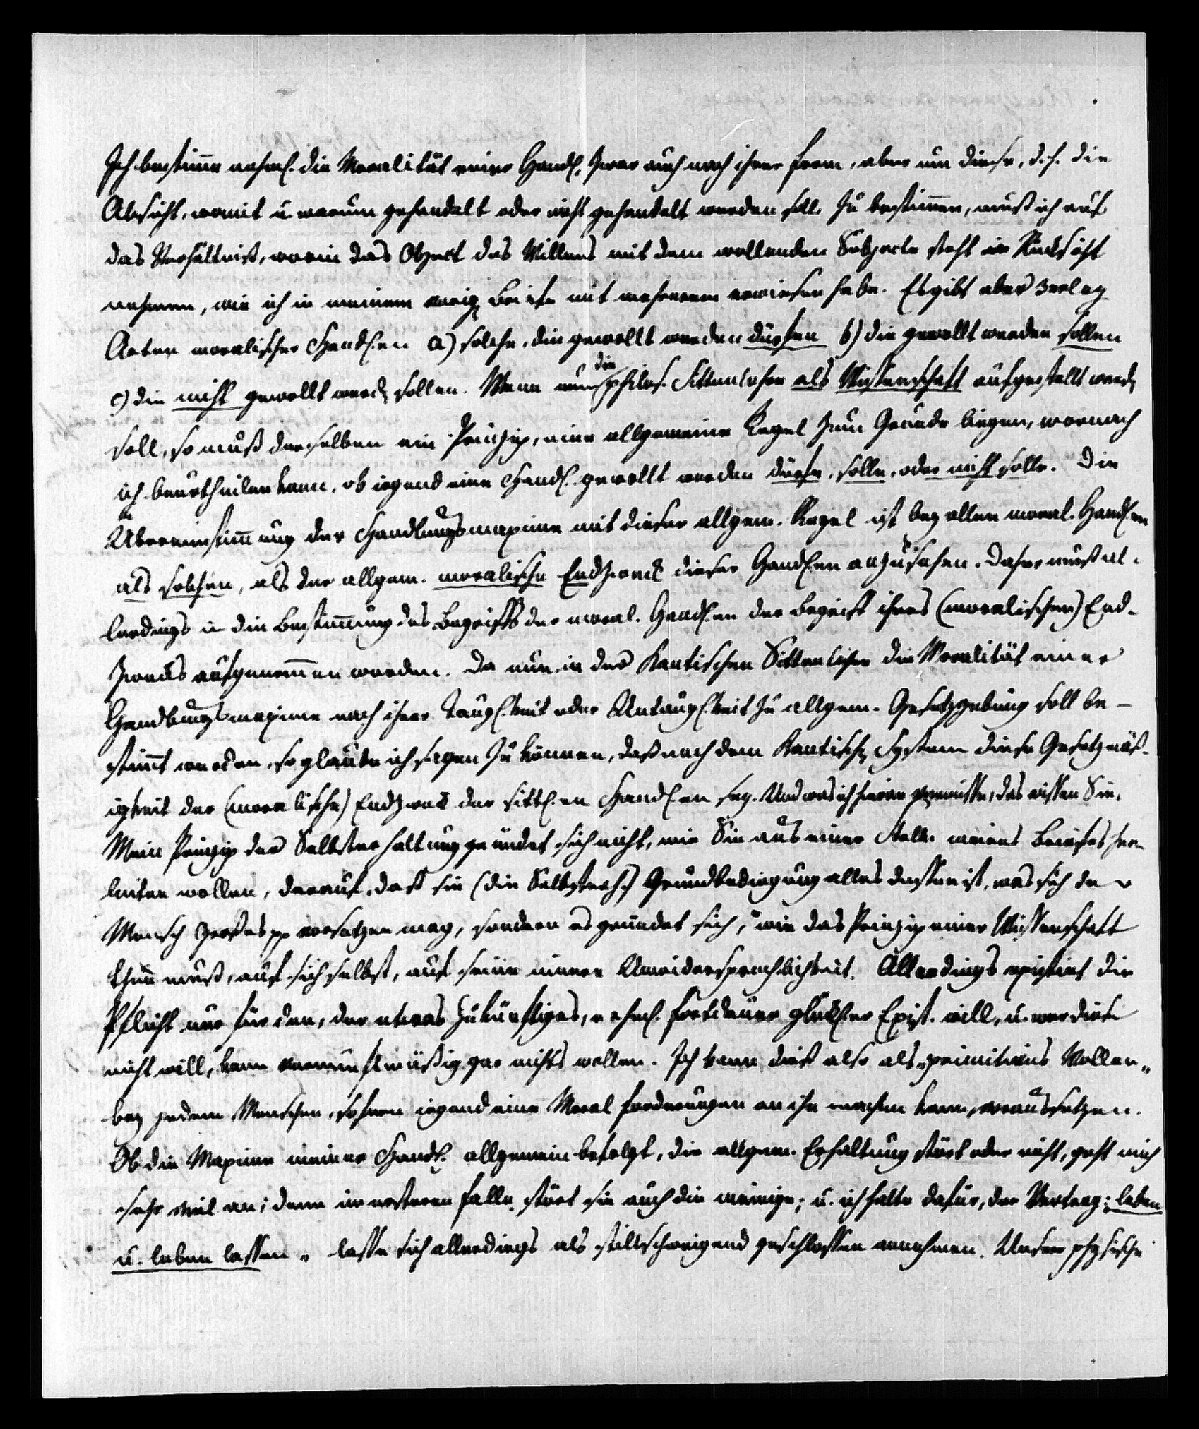 Ich bestimme nehml. die Moralität einer Handl. zwar auch nach ihrer Form, aber um diese, d. h. die
Absicht, womit u. warum gehandelt oder nicht gehandelt werden soll, zu bestimmen, muß ich auf
das Verhältniß, worin das Object des Willens mit dem wollenden Subjecte steht in Rücksicht
nehmen, wie ich in meinem vorig. Briefe mit mehrerem erwiesen habe. Es gibt aber 3erley
Arten moralischer Handl.en a) solche, die gewollt werden dürfen b) die gewollt werden sollen
c) die nicht gewollt werd. sollen. Wenn nun die philos. Sittenlehre als Wissenschaft aufgestellt werd.
soll, so muß derselben ein Prinzip, eine allgemeine Regel zum Grunde liegen, wornach
ich beurtheilen kann, ob irgend eine Handl. gewollt werden dürfe, solle, oder nicht solle. Die
Übereinstimmung der Handlungsmaxime mit dieser allgem. Regel ist bey allen moral. Handl.en
als solchen, als der allgem. moralische Endzweck dieser Handl.en anzusehen. Daher muß al-
lerdings in die Bestimmung des Begriffs der moral. Handl.en der Begriff ihres (moralischen) End-
zwecks aufgenommen werden. Da nun in der Kantischen Sittenlehre die Moralität einer
Handlungsmaxime nach ihrer Taugl.keit oder Untaugl.keit zu allgem. Gesetzgebung soll be-
stimmt werden, so glaube ich sagen zu können, daß nach dem Kantisch. System diese Gesetzmäß-
igkeit der (moralische) Endzweck der sittl.en Handl.en sey. Und was ich hieran vermisse, das wissen Sie.
Mein Prinzip der Selbsterhaltung gründet sich nicht, wie Sie aus einer Stelle meines Briefes her-
leiten wollen, darauf, daß sie (die Selbsterh.) Grundbedingung alles dessen ist, was sich der
Mensch großes pp vorsetzen mag, sondern es gründet sich, wie das Prinzip einer Wissenschaft
thun muß, auf sich selbst, auf seine innere Unwidersprechlichkeit. Allerdings existirt die
Pflicht nur für den, der etwas zukünftiges, nehml. Fortdauer glückl.er Exist. will, u. wer diese
nicht will, kann vernunftmäßig gar nichts wollen. Ich kann dieß also als „primitives Wollen„
bey jedem Menschen, sofern irgend eine Moral Forderungen an ihn machen kann, voraussetzen.
Ob die Maxime meiner Handl. allgemein befolgt, die allgem. Erhaltung stört oder nicht, geht mich
sehr viel an; denn im ersteren Falle stört sie auch die meinige; u. ich halte dafür, der Vertrag: leben
u. leben lassen „ lasse sich allerdings als stillschweigend geschlossen annehmen. Unsere physische